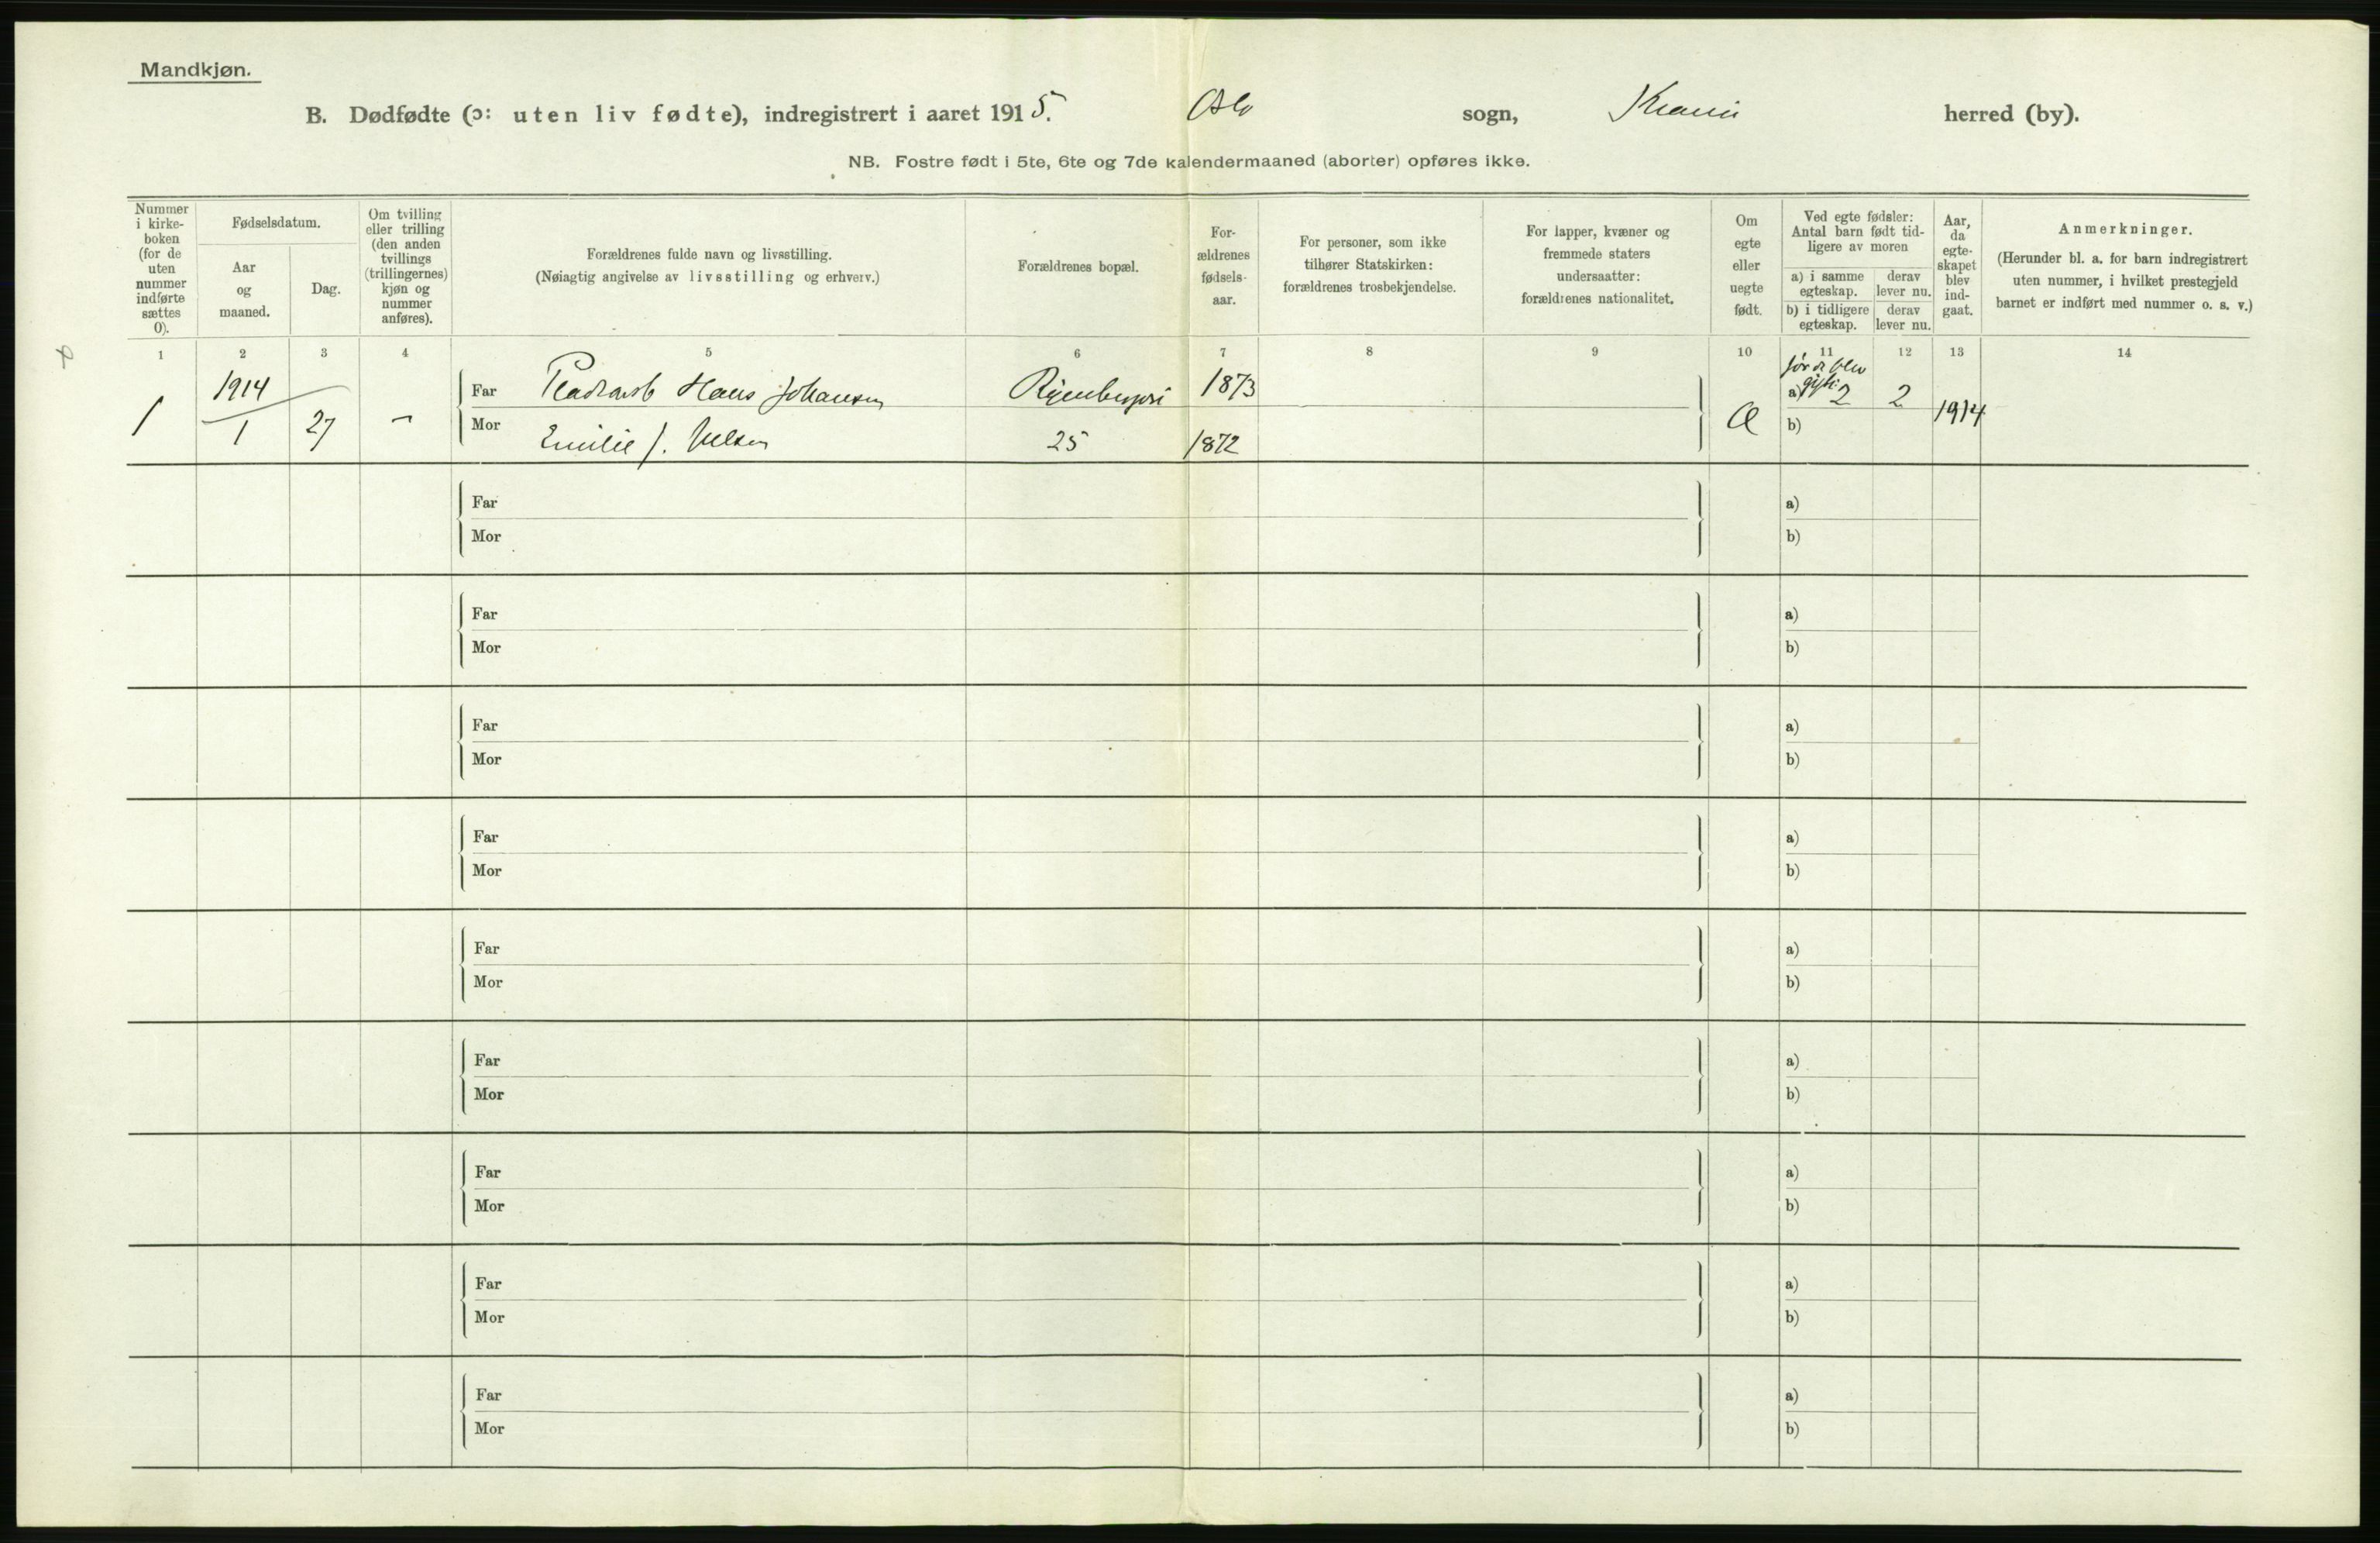 Mandkjøn.
B. Dødfødte (ɔ: uten liv fødte), indregistrert i aaret 1915. Oslo sogn, Kra herred (by).
NB. Fostre født i 5te, 6te og 7de kalendermaaned (aborter) opføres ikke.
Nummer
i kirke-
boken
(for de
uten
nummer
indførte
sættes
0).
Fødselsdatum.
Aar
og
maaned.
Dag.
Om tvilling
eller trilling
(den anden
tvillings
(trillingernes)
kjøn og
nummer
anføres).
Forældrenes fulde navn og livsstilling.
(Nøiagtig angivelse av livsstilling og erhverv.)
Forældrenes bopæl.
For-
ældrenes
fødsels-
aar.
For personer, som ikke
tilhører Statskirken:
forældrenes trosbekjendelse.
For lapper, kvæner og
fremmede staters
undersaatter:
forældrenes nationalitet.
Om
egte
eller
uegte
født.
Ved egte fødsler:
Antal barn født tid-
ligere av moren
a) i samme
egteskap.
derav
lever nu.
b) i tidligere
egteskap.
derav
lever nu.
Aar,
da
egte-
skapet
blev
ind-
gaat.
Anmerkninger.
(Herunder bl. a. for barn indregistrert
uten nummer, i hvilket prestegjeld
barnet er indført med nummer o. s. v.)
1 2 3 4 5 6 7 8 9 10 11 12 13 14
før de blev
gift:
1914 Far Hans Johansen 1873 a) 2 2
1 1 27 – Æ 1914
Mor Emilie J. Nelsen 25 1872 b)
Far a)
Mor b)
Far a)
Mor b)
Far a)
Mor b)
Far a)
Mor b)
Far a)
Mor b)
Far a)
Mor b)
Far a)
Mor b)
Far a)
Mor b)
Far a)
Mor b)